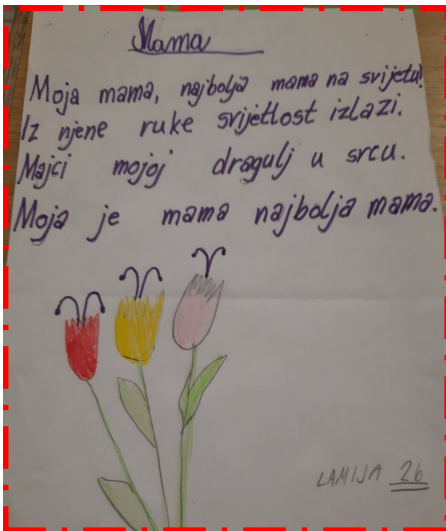 Mama
Moja mama, najbolja mama na svijetu!
Iz njene ruke svijetlost izlazi.
Majci mojoj dragulj u srcu.
Moja je mama najbolja mama.
LAMIJA 2b